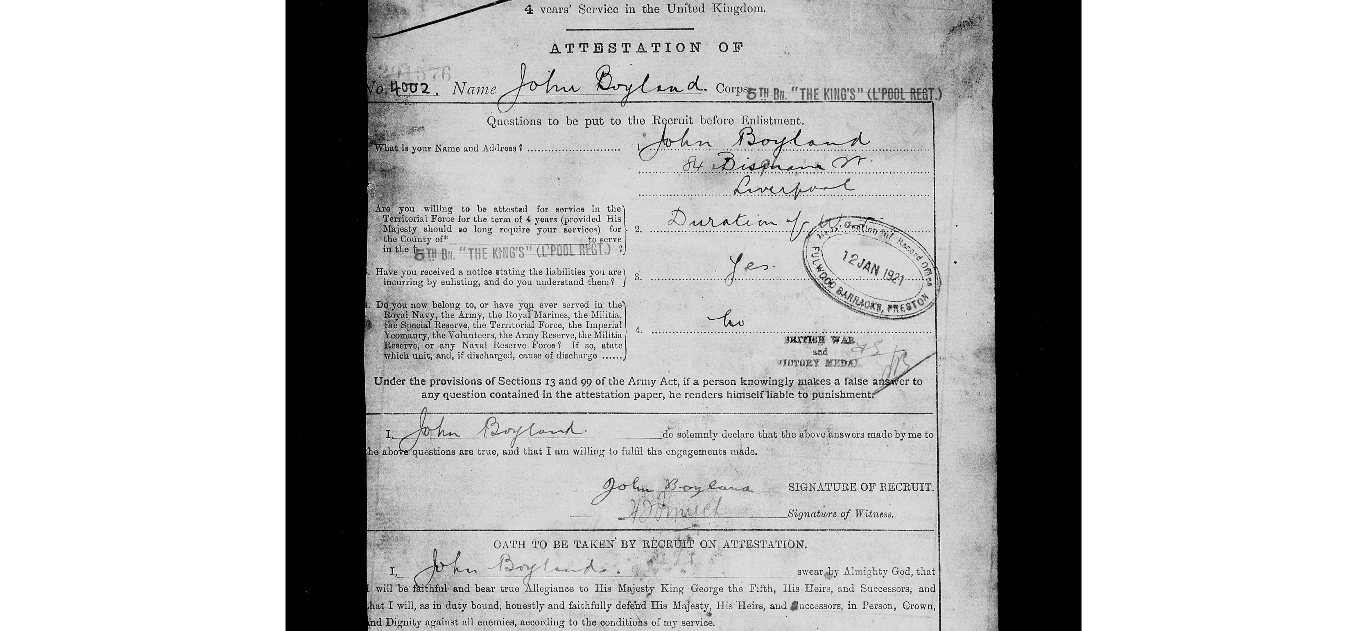 4 years' Service in the United Kingdom.
ATTESTATION OF
No. 4002. Name John Boyland. Corps 5TH BN. "THE KING'S" (L'POOL REGT.)
Questions to be put to the Recruit before Enlistment.
What is your Name and Address? 1. John Boyland
84
Liverpool
Are you willing to be attested for service in the
Territorial Force for the term of 4 years (provided His
Majesty should so long require your services) for
the County of* to serve
in the 5TH BN. "THE KING'S" (L'POOL REGT.) ?
2. Duration of
Have you received a notice stating the liabilities you are
incurring by enlisting, and do you understand them?
3. Yes.
Do you now belong to, or have you ever served in the
Royal Navy, the Army, the Royal Marines, the Militia,
the Special Reserve, the Territorial Force, the Imperial
Yeomanry, the Volunteers, the Army Reserve, the Militia
Reserve, or any Naval Reserve Force? If so, state
which unit, and, if discharged, cause of discharge ......
4. No
Record Office
12 JAN 1921
FULWOOD BARRACKS, PRESTON
BRITISH WAR
and
VICTORY MEDAL
Under the provisions of Sections 13 and 99 of the Army Act, if a person knowingly makes a false answer to
any question contained in the attestation paper, he renders himself liable to punishment.
I, John Boyland. do solemnly declare that the above answers made by me to
he above questions are true, and that I am willing to fulfil the engagements made.
John Boyland SIGNATURE OF RECRUIT.
Signature of Witness.
OATH TO BE TAKEN BY RECRUIT ON ATTESTATION.
I, John Boyland. swear by Almighty God, that
I will be faithful and bear true Allegiance to His Majesty King George the Fifth, His Heirs, and Successors, and
hat I will, as in duty bound, honestly and faithfully defend His Majesty, His Heirs, and Successors, in Person, Crown,
nd Dignity against all enemies, according to the conditions of my service.